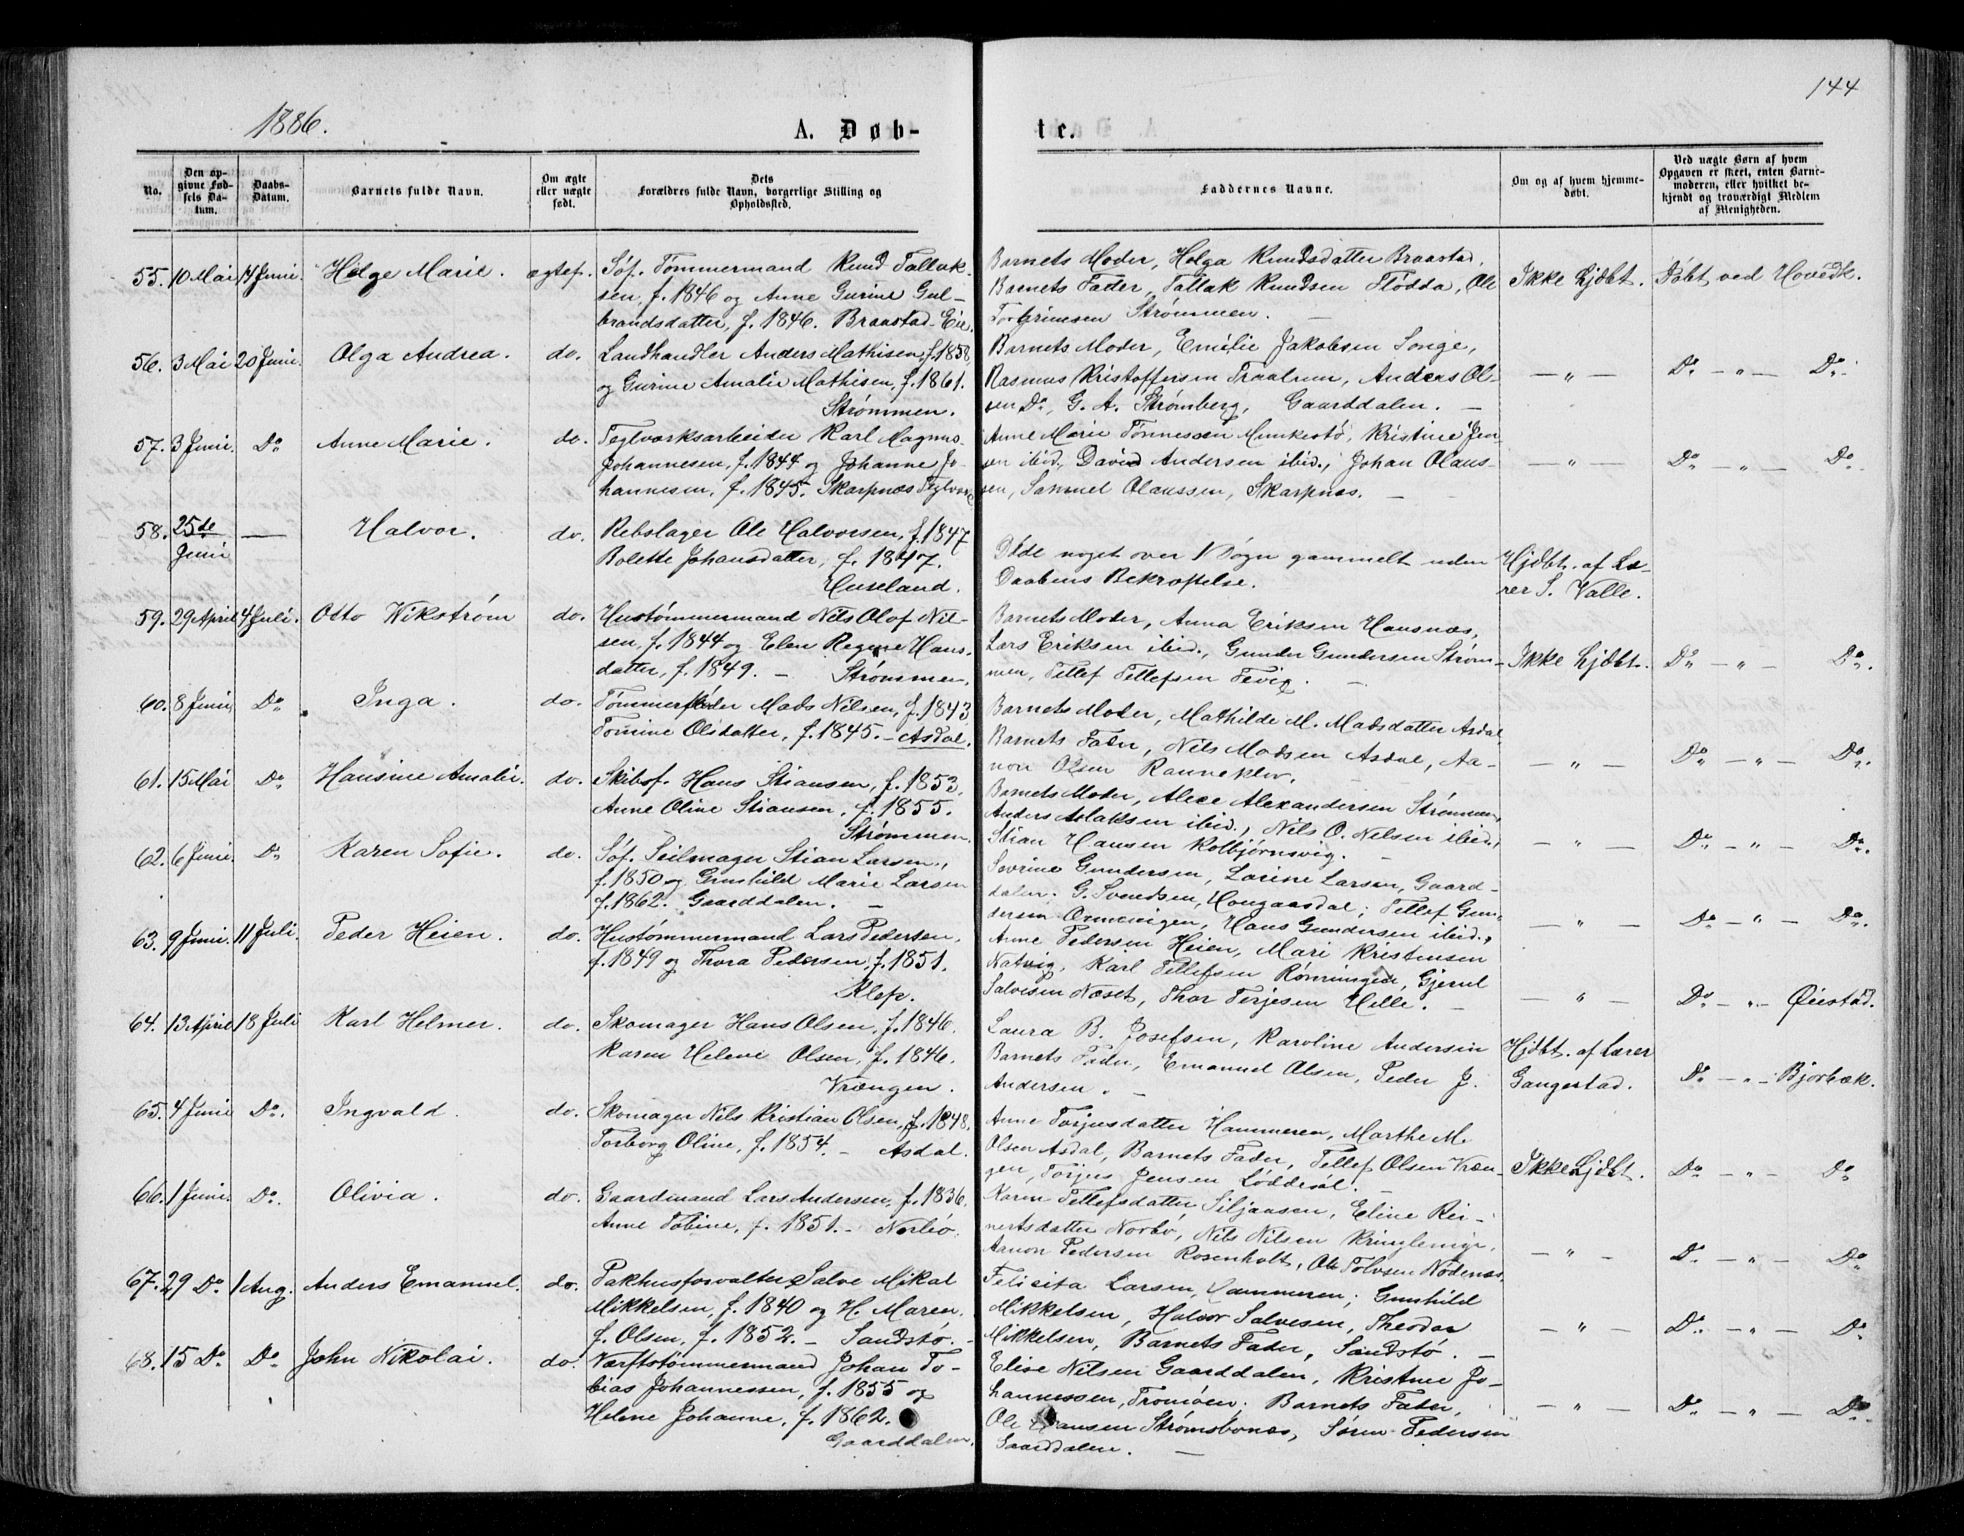 1886.
A. Døb-
te.
144
No.
Den op-
givne Fød-
sels Da-
tum.
Daabs-
Datum.
Barnets fulde Navn.
Om ægte
eller uægte
født.
Dets
Forældres fulde Navn, borgerlige Stilling og
Opholdssted.
Faddernes Navne.
Om og af hvem hjemme-
døbt.
Ved uægte Børn af hvem
Opgaven er skeet, enten Barne-
moderen, eller hvilket be-
kjendt og troværdigt Medlem
af Menigheden.
55. 10 Mai 14 Juni. Helge Marie. ægtef.
Søf. Tømmermand Knud Tallak-
sen, f. 1846 og Anne Gurine Gul-
brandsdatter, f. 1846. Braastad-Eie.
Barnets Moder, Helga Knudsdatter Braastad,
Barnets Fader, Tallak Knudsen Flødda, Ole
Torgrimsen Strømmen.
Ikke hjdbt. Døbt ved Hovedk.
56. 3 Mai 20 Juni. Olga Andrea. do.
Landhandler Anders Mathisen, f. 1858,
og Gurine Amalie Mathisen, f. 1861.
Strømmen.
Barnets Moder, Emilie Jakobsen Songe,
Rasmus Kristoffersen Traalum, Andreas Ol-
sen Do, G. A. Strømberg, Gaarddalen.
— " — Do — " — Do.
57. 3 Juni. Do Anne Marie. do.
Teglværksarbeider Karl Magnus
Johannesen, f. 1844 og Johanne Jo-
hannesen, f. 1845. Skarpnæs Teglværk
Anne Marie Tønnessen Munkestø, Kristine Jen-
sen ibid., David Andersen ibid., Johan Olaus-
sen, Samuel Olaussen, Skarpnæs.
— " — Do — " — Do
58. 25de Juni — Halvor. do.
Rebslager Ole Halvorsen, f. 1847
Bolette Johansdatter, f. 1847.
Huseland.
Døde noget over 1 Døgn gammelt uden
Daabens Bekræftelse.
Hjdbt. af Læ-
rer S. Valle.
59. 29 April 4 Juli. Otto Wikstrøm do.
Hustømmermand Nils Olof Nil-
sen, f. 1844 og Elen Regine Hans-
datter, f. 1849. — Strømmen.
Barnets Moder, Anna Eriksen Hansnæs,
Lars Eriksen ibid., Gunder Gundersen Strøm-
men, Tellef Tellefsen Fevig.
Ikke hjdbt. Do — " — Do.
60. 8 Juni, Do Inga. do.
Mads Nilsen, f. 1843
Tomine Olsdatter, f. 1845. — Asdal.
Barnets Moder, Mathilde M. Madsdatter Asdal,
Barnets Fader, Nils Madsen Asdal, Aa-
non Olsen Ranneklev.
— " — Do — " — Do.
61. 15 Mai Do Hansine Amalie. do.
Skibsf. Hans Stiansen, f. 1853,
Anne Oline Stiansen, f. 1855.
Strømmen.
Barnets Moder, Alece Alexandersen Strømmen,
Anders Aslaksen ibid., Nils O. Nelsen ibid.,
Stian Hansen Kolbjørnsvig.
— " — Do — " — Do.
62. 6 Juni. Do Karen Sofie. do.
Søf. Seilmager Stian Larsen,
f. 1850 og Gunhild Marie Larsen
f. 1862. Gaarddalen. —
Sevrine Gundersen, Lovise Larsen, Gaard-
dalen; G. Svendsen, Hougaasdal; Tellef Gun-
dersen Ormevigen, Hans Gundersen ibid.,
— " — Do — " — Do.
63. 9 Juni. 11 Juli. Peder Heien. do.
Hustømmermand Lars Pedersen,
f. 1849 og Thora Pedersen, f. 1851.
Klep.
Anne Pedersen Heien, Mari Kristensen
Natvig, Karl Tellefsen Gjerul
Salvesen Næset, Thor Terjesen Helle.
— " — Do — " — Øiestad.
64. 13 April 18 Juli Karl Helmer. do.
Skomager Hans Olsen, f. 1846.
Karen Helene Olsen, f. 1846.
Vrængen.
Laura B. Josefsen, Karoline Andersen
Barnets Fader, Emanuel Olsen, Peder J.
Andersen.
Hjdbt. af Lærer
Gangestad. Do — " — Bjorbæk.
65. 4 Juni Do. Ingvald. do.
Skomager Nils Kristian Olsen, f. 1848.
Torborg Oline, f. 1854. — Asdal.
Anne Torjusdatter Hammeren, Marthe M.
Olsen Asdal, Barnets Fader, Tellef Olsen Vræn-
gen, Torjus Jensen Løddesøl.
Ikke hjdbt. Do — " — Do
66. 1 Juni. Do. Olivia. do.
Gaardmand Lars Andersen, f. 1836,
Anne Tobine, f. 1851. — Norbø.
Karen Tellefsdatter Siljaasen, Eline Rei-
nertsdatter Norbø, Nils Nilsen Kringlemyr,
Aanon Pedersen Rosenholt, Ole Tolvsen Nødenæs.
— " — Do — " — Do
67. 29 Do. 1 Aug. Anders Emanuel. do.
Pakhusforvalter Salve Mikal
Mikkelsen, f. 1840 og H. Maren,
f. Olsen, f. 1852. — Sandstø. —
Felicita Larsen, Hammeren; Gunhild
Mikkelsen, Halvor Salvesen, Theodor
Mikkelsen, Barnets Fader, Sandstø. —
— " — Do — " — Do
68. 15 Do. Do John Nikolai. do.
Værftstømmermand Johan To-
bias Johannessen, f. 1855 og
Helene Johanne, f. 1862.
Gaarddalen.
Elise Nilsen Gaarddalen, Kristine Jo-
hannessen, Tromøen. Barnets Fader,
Ole Hansen Strømsbonæs, Søren Pedersen
Gaarddalen.
— " — Do — " — Do